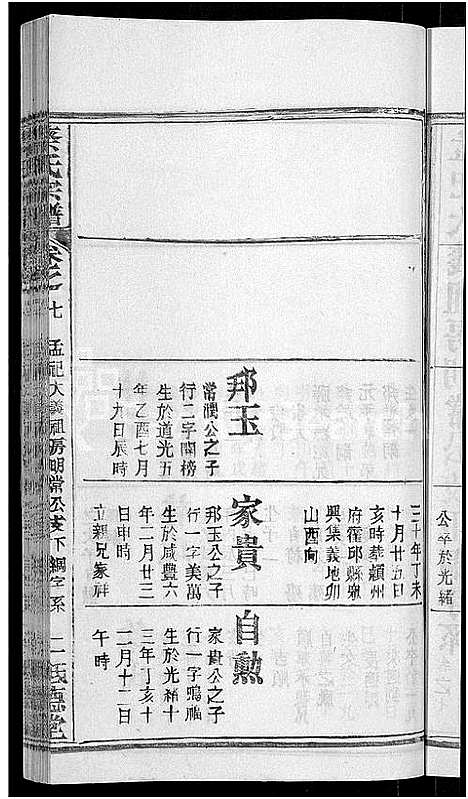 公卒於光緒
三十年丁未
十月廿五日
亥時葬潁州
府霍邱縣
興集義地卯
山酉向
邦玉
常潤公之子
行二字開榜
生於道光五
年乙酉七月
十九日辰時
家貴
邦玉公之子
行一字美萬
生於咸豐六
年二月廿三
日申時
立親兄家祥
自勲
家貴公之子
行一字鳴福
生於光緒十
三年丁亥十
二月十二日
午時
蔡氏宗譜
卷之一
七
孟祀大義祖房明常公支下綱字系
二